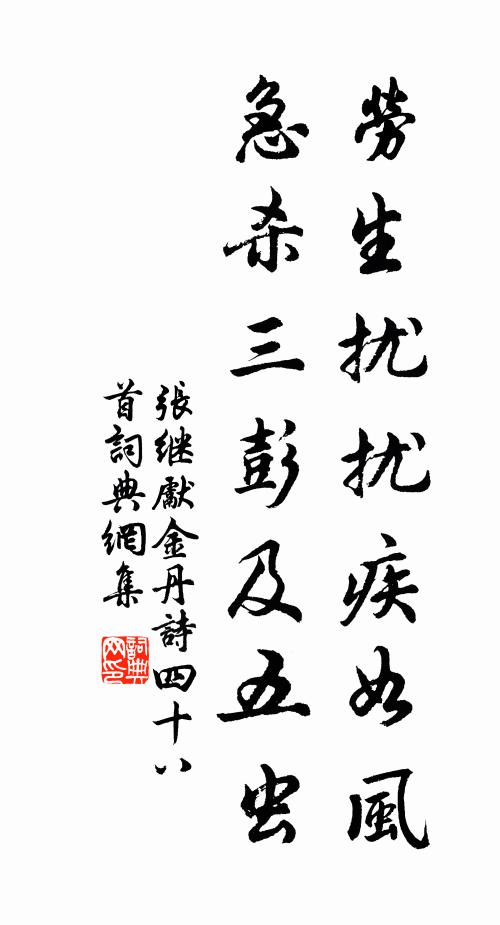 勞生扰扰疾如風
急杀三彭及五虫
張继獻金丹詩四十八
首詞典網集
詞典网印